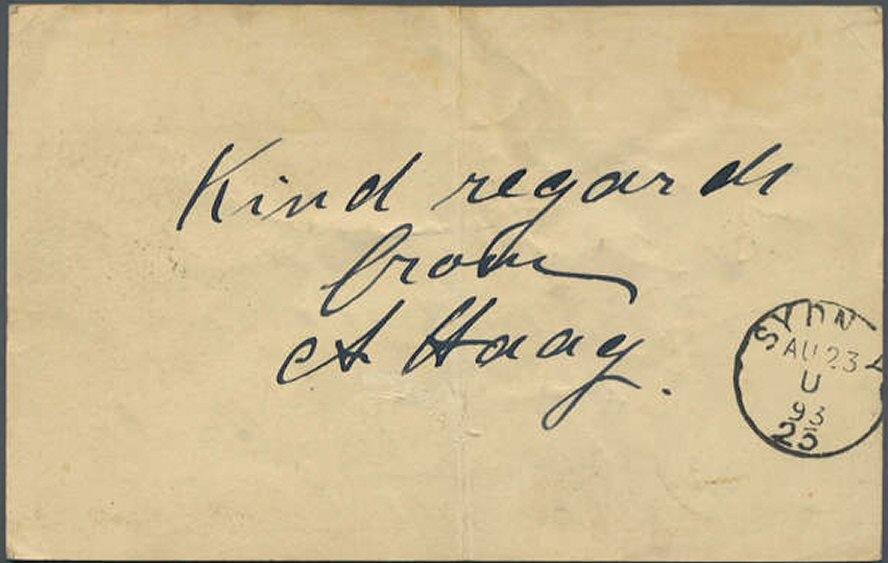 Kind regards
from
A Haag.
SYDN Y
AU 23
U
93
25